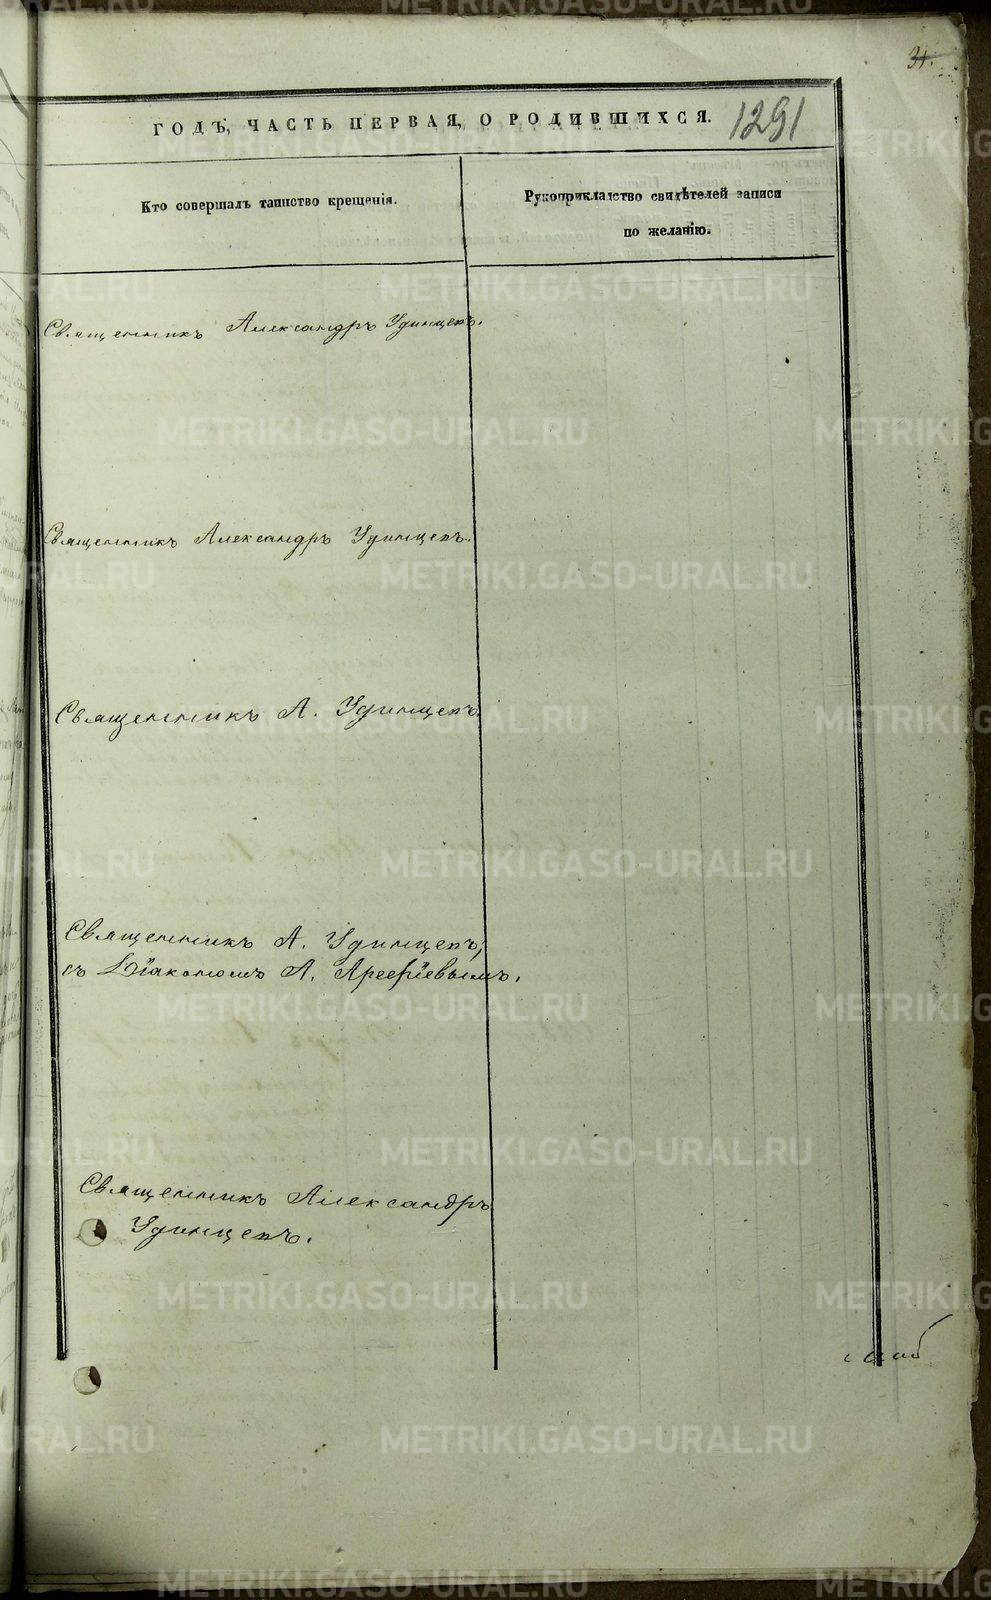 31.
ГОДЪ, ЧАСТЬ ПЕРВАЯ, О РОДИВШИХСЯ. 1291
Кто совершалъ таинство крещенія.
Рукоприкладство свидѣтелей записи
по желанію.
Священникъ Александръ Удинцевъ.
Священникъ Александръ Удинцевъ.
Священникъ А. Удинцевъ.
Священникъ А. Удинцевъ,
съ Діакономъ А. Арефіевымъ.
Священникъ Александръ
Удинцевъ.
METRIKI.GASO-URAL.RU